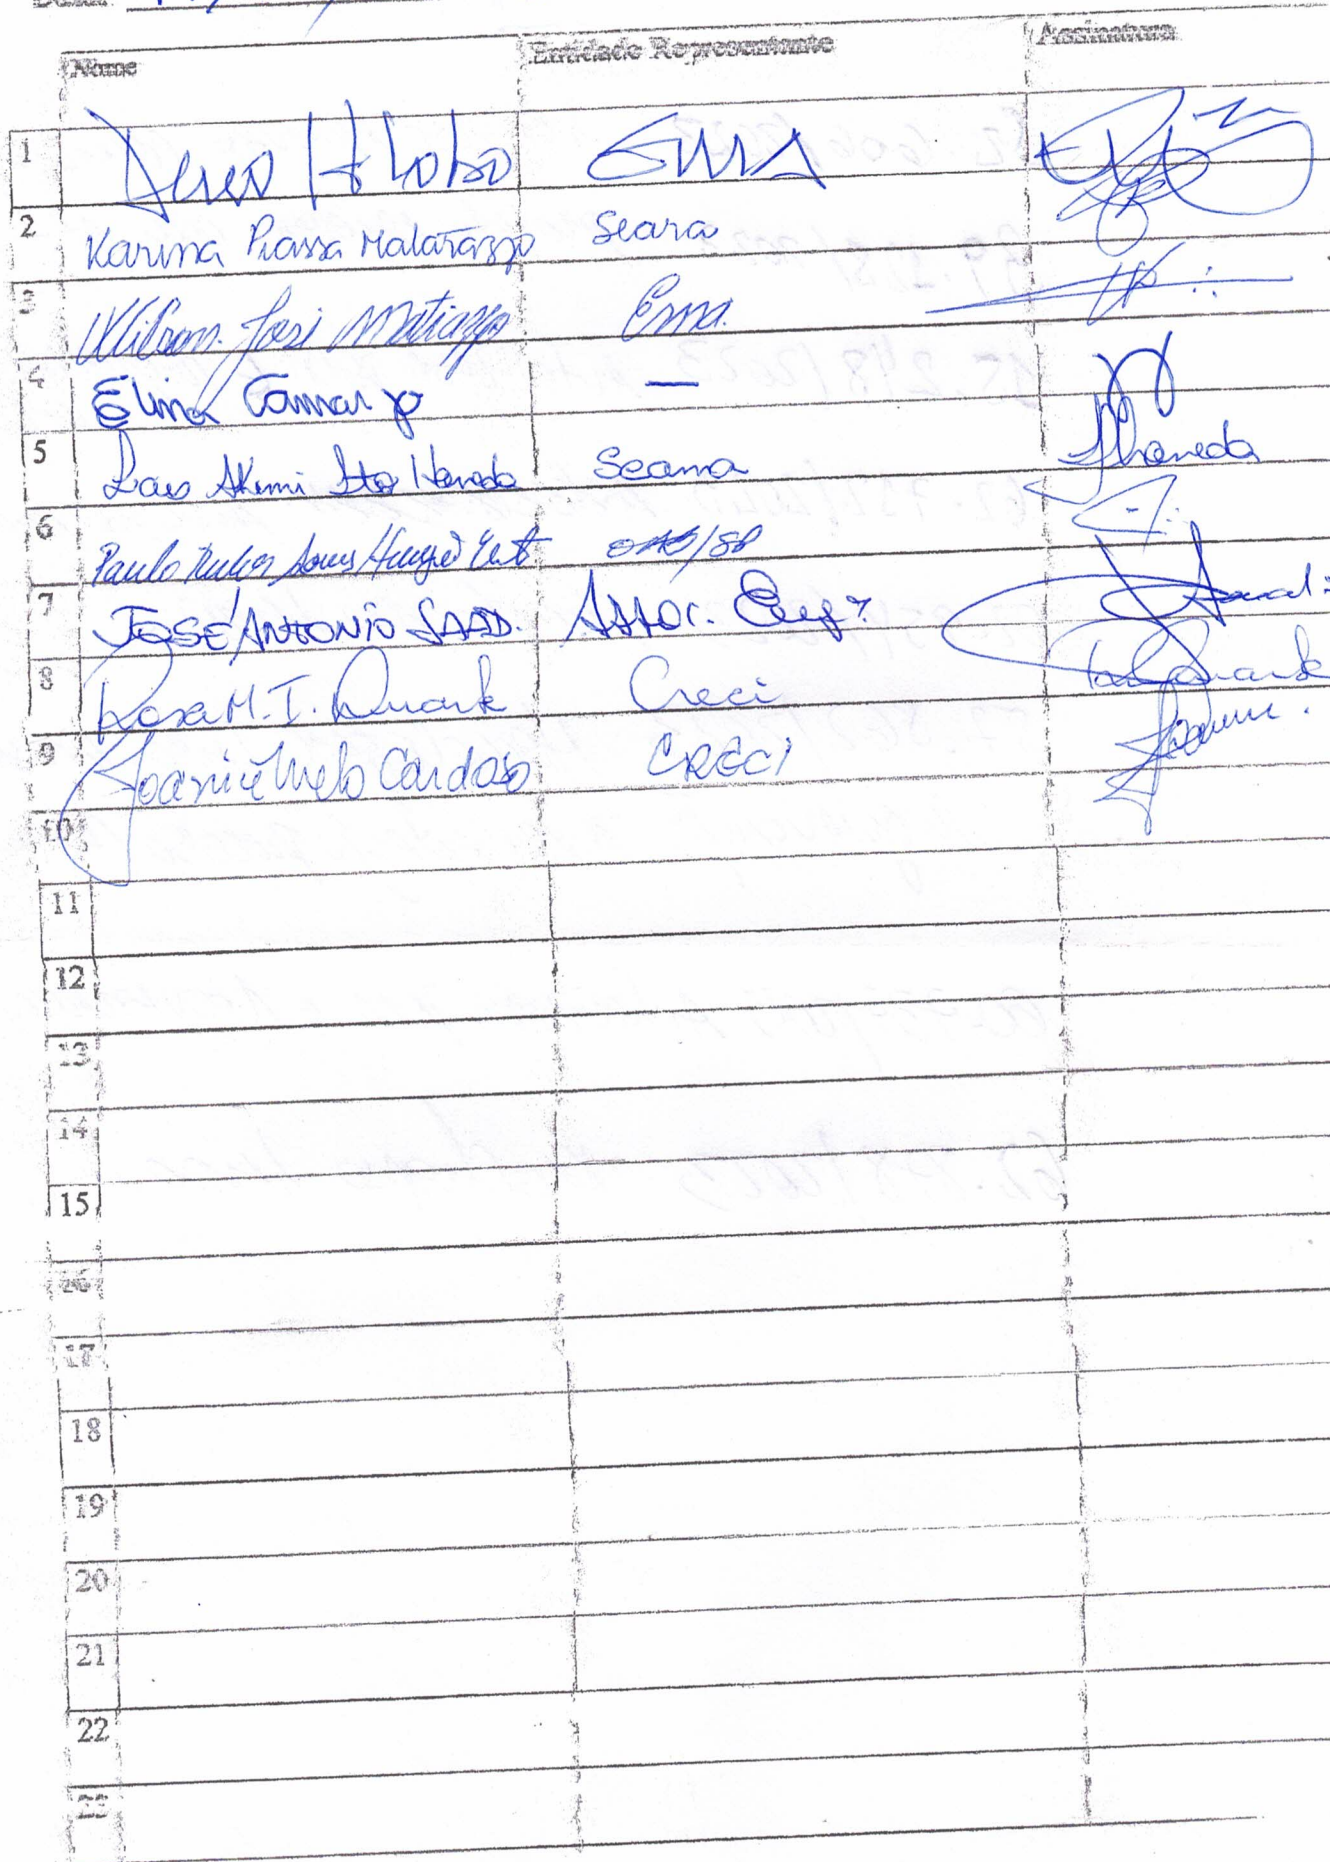 Nome Entidade Representante Assinatura
1 H Lobo EMA
2 Karina Piassa Matarazzo Seara
3 Wilson José Matiazzo Ema.
4 Elina Camargo —
5 Lais Akemi Ito Haneda Seama LHaneda
6 Paulo OAB/SP
7 JOSÉ ANTONIO SAAD. Assoc. Eng.
8 Rosa M. T. Duarte Creci
9 Melo Cardoso CRECI
10
11
12
13
14
15
16
17
18
19
20
21
22
23